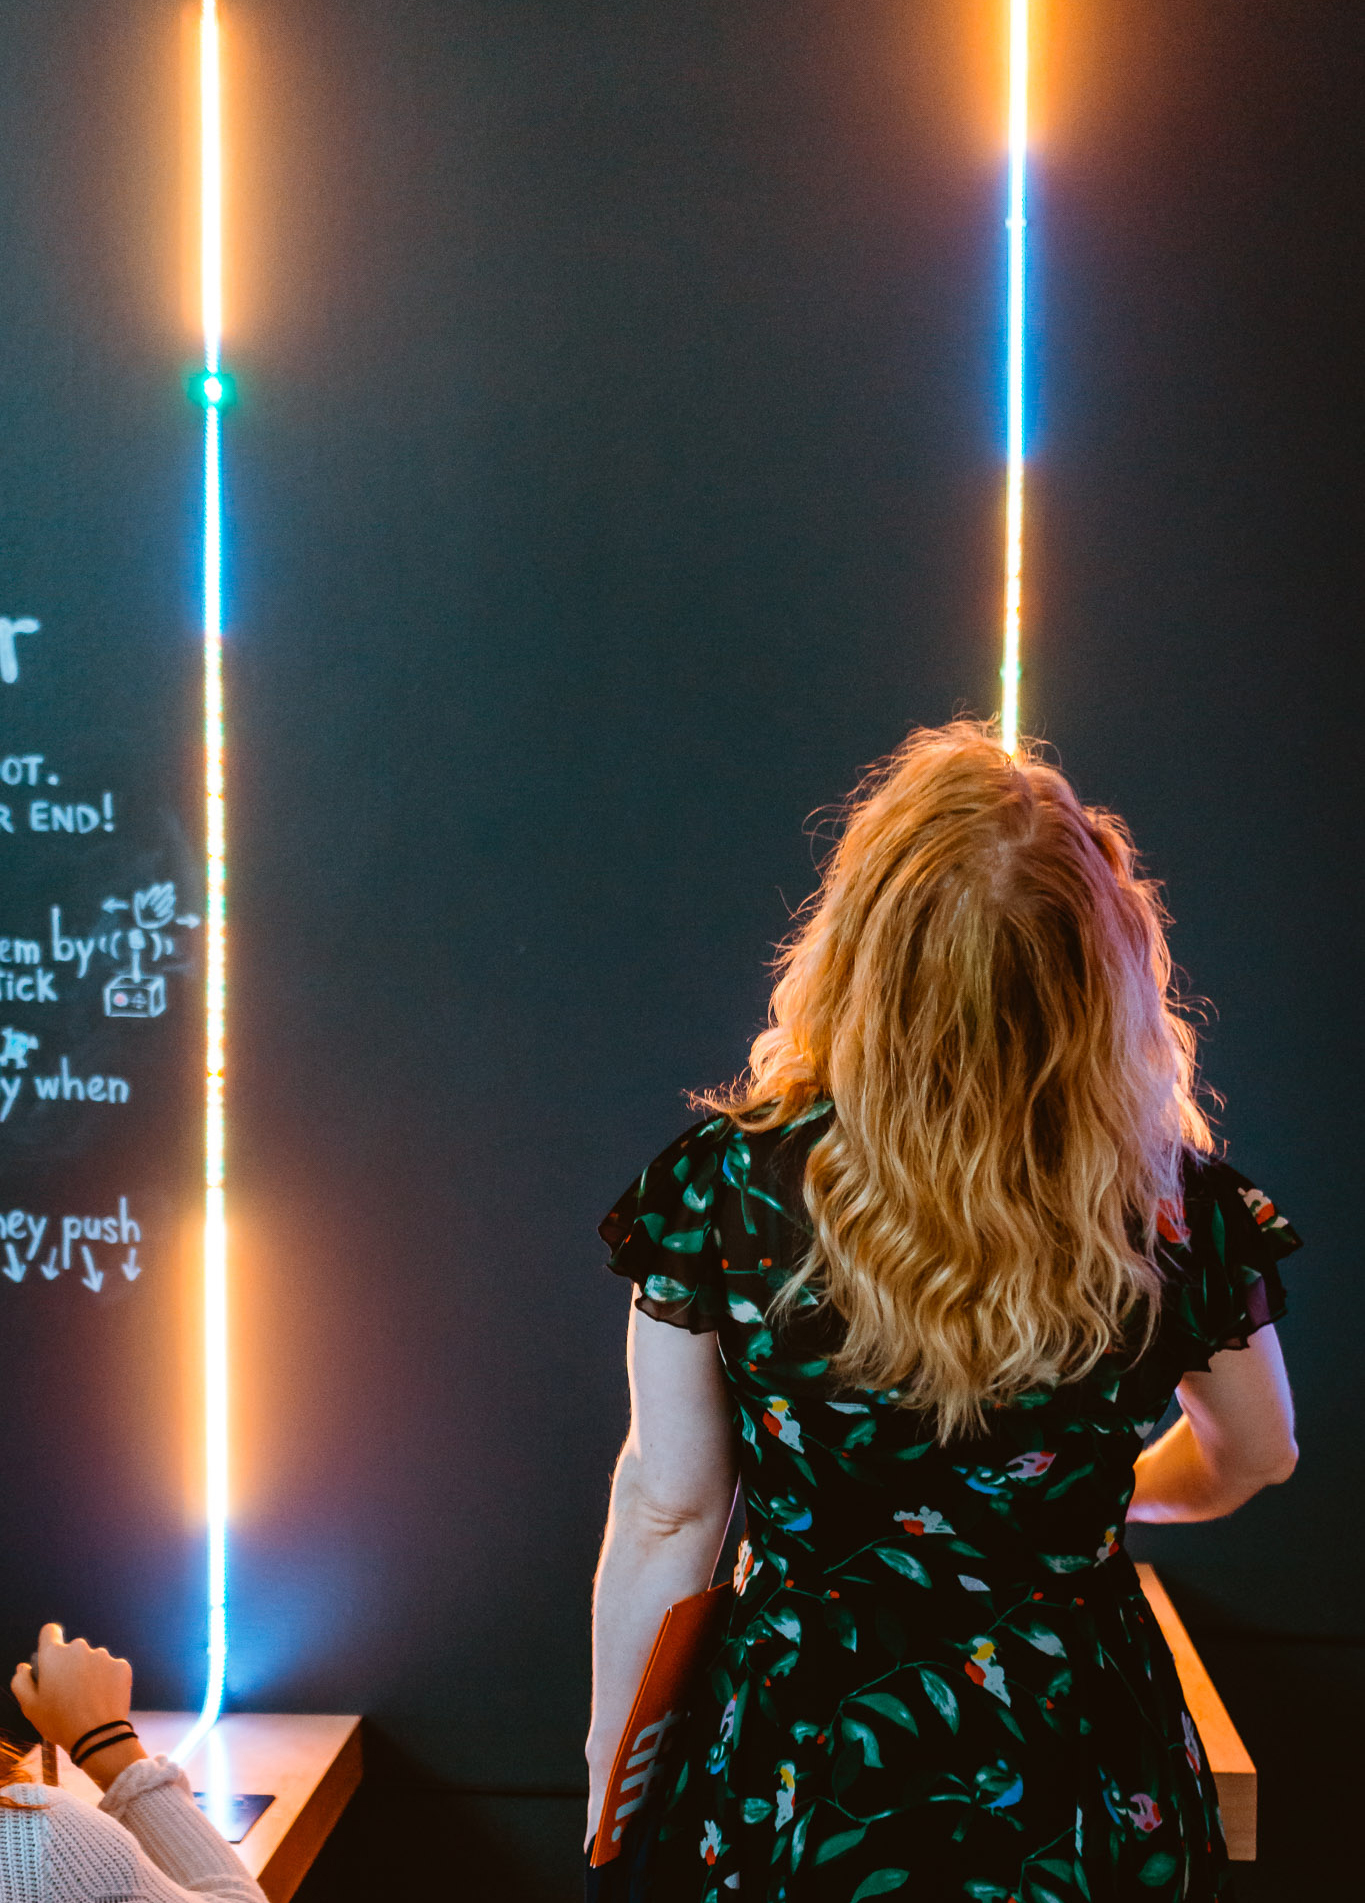 r
OT.
R END!
em by
TICK
y when
hey push